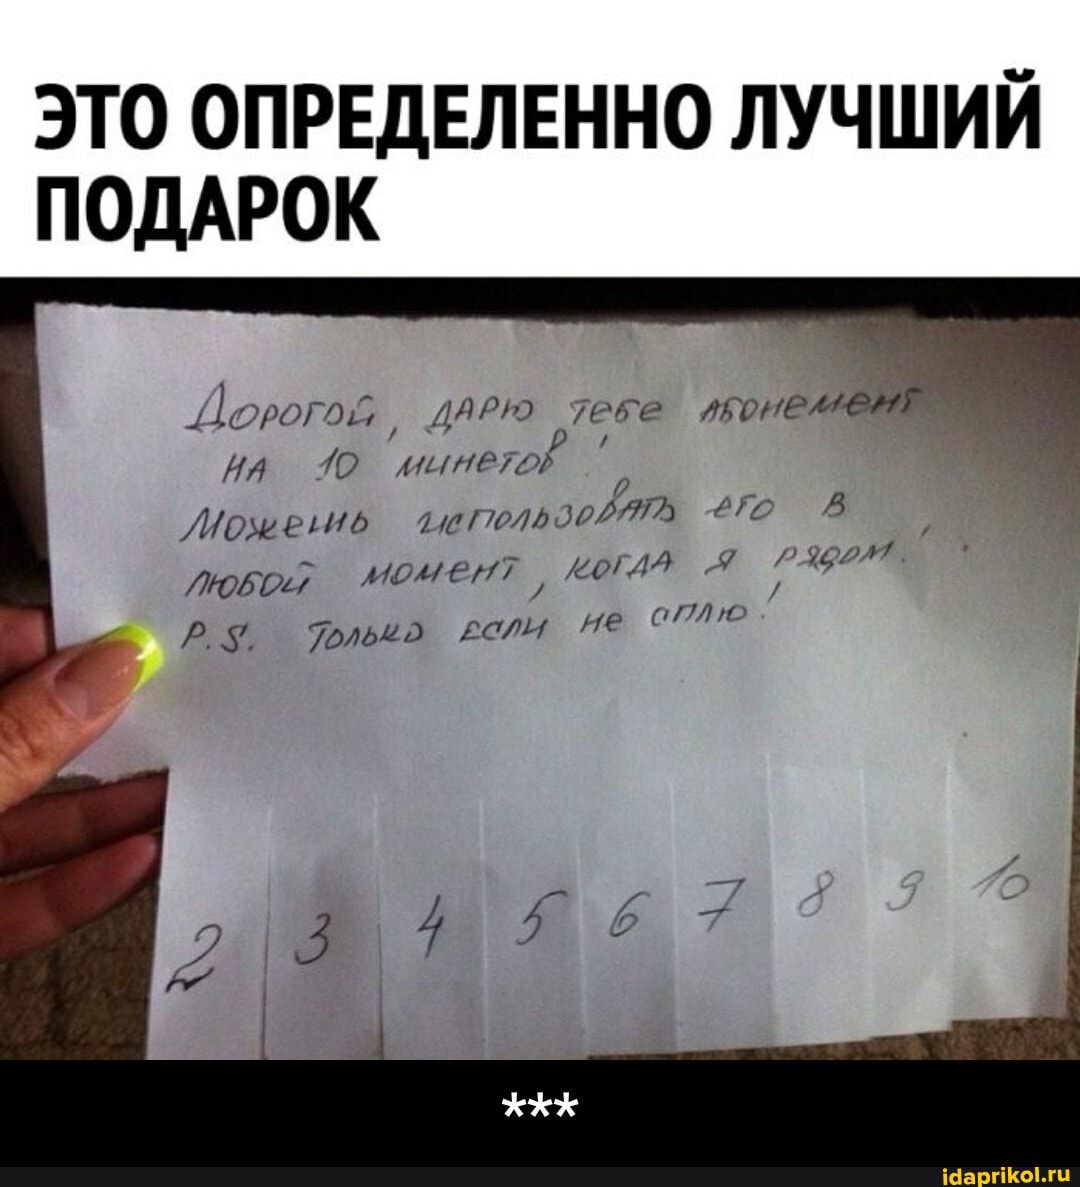 ЭТО ОПРЕДЕЛЕННО ЛУЧШИЙ
ПОДАРОК
Дорогой, дарю тебе абонемент
на 10 минетов!
Можешь использовать его в
любой момент, когда я рядом!
P.S. Только если не сплю!
2 3 4 5 6 7 8 9 10
***
idaprikol.ru